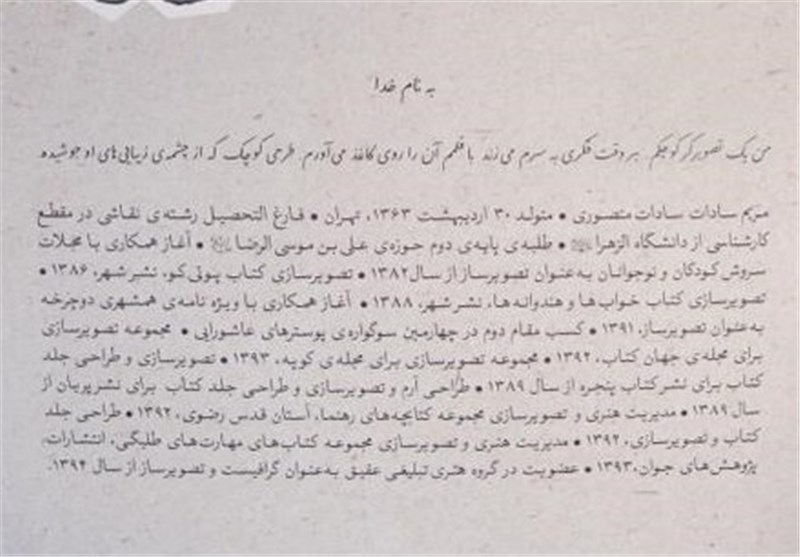 به نام خدا
من یک تصویرگر کوچکم. هر وقت فکری به سرم می‌زند با قلمم آن را روی کاغذ می‌آورم. طرحی کوچک که از چشمه‌ی زیبایی‌های او جوشیده.
مریم سادات سادات منصوری • متولد ۳۰ اردیبهشت ۱۳۶۳، تهران • فارغ التحصیل رشته‌ی نقاشی در مقطع
کارشناسی از دانشگاه الزهرا • طلبه‌ی پایه‌ی دوم حوزه‌ی علی بن موسی الرضا • آغاز همکاری با مجلات
سروش کودکان و نوجوانان به‌عنوان تصویرساز از سال ۱۳۸۲ • تصویرسازی کتاب پوتی‌کو، نشر شهر، ۱۳۸۶ •
تصویرسازی کتاب خواب‌ها و هندوانه‌ها، نشر شهر، ۱۳۸۸ • آغاز همکاری با ویژه نامه‌ی همشهری دوچرخه
به‌عنوان تصویرساز، ۱۳۹۱ • کسب مقام دوم در چهارمین سوگواره‌ی پوسترهای عاشورایی • مجموعه تصویرسازی
برای مجله‌ی جهان کتاب، ۱۳۹۲ • مجموعه تصویرسازی برای مجله‌ی کوپه، ۱۳۹۳ • تصویرسازی و طراحی جلد
کتاب برای نشر کتاب پنجره از سال ۱۳۸۹ • طراحی آرم و تصویرسازی و طراحی جلد کتاب برای نشر پریان از
سال ۱۳۸۹ • مدیریت هنری و تصویرسازی مجموعه کتابچه‌های رهنما، آستان قدس رضوی، ۱۳۹۲ • طراحی جلد
کتاب و تصویرسازی، ۱۳۹۲ • مدیریت هنری و تصویرسازی مجموعه کتاب‌های مهارت‌های طلبگی، انتشارات
پژوهش‌های جوان، ۱۳۹۳ • عضویت در گروه هنری تبلیغی عقیق به‌عنوان گرافیست و تصویرساز از سال ۱۳۹۴.